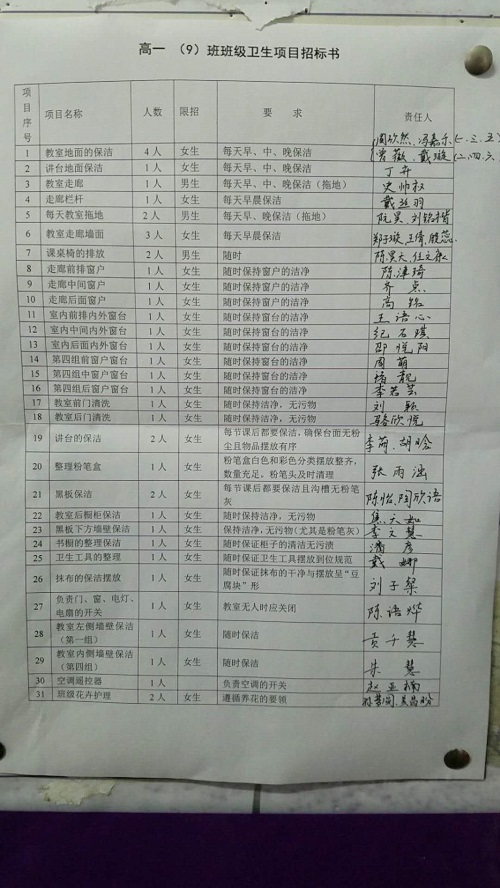 高一 （9）班班级卫生项目招标书
项目序号 项目名称 人数 限招 要 求 责任人
1 教室地面的保洁 4人 女生 每天早、中、晚保洁
2 讲台地面保洁 1人 女生 每天早、中、晚保洁
3 教室走廊 1人 男生 每天早、中、晚保洁（拖地） 史帅权
4 走廊栏杆 1人 女生 每天早晨保洁
5 每天教室拖地 2人 男生 每天早、晚保洁（拖地）
6 教室走廊墙面 3人 女生 每天早晨保洁
7 课桌椅的排放 2人 男生 随时
8 走廊前排窗户 1人 女生 随时保持窗户的洁净 陈津琦
9 走廊中间窗户 1人 女生 随时保持窗户的洁净
10 走廊后面窗户 1人 女生 随时保持窗户的洁净
11 室内前排内外窗台 1人 女生 随时保持窗台的洁净 王语心
12 室内中间内外窗台 1人 女生 随时保持窗台的洁净
13 室内后面内外窗台 1人 女生 随时保持窗台的洁净 邵悦阳
14 第四组前窗户窗台 1人 女生 随时保持窗台的洁净 周萌
15 第四组中窗户窗台 1人 女生 随时保持窗台的洁净
16 第四组后窗户窗台 1人 女生 随时保持窗台的洁净 李若芸
17 教室前门清洗 1人 女生 随时保持洁净，无污物 刘颖
18 教室后门清洗 1人 女生 随时保持洁净，无污物
19 讲台的保洁 2人 女生 每节课后都要保洁，确保台面无粉
尘且物品摆放有序
20 整理粉笔盒 1人 女生 粉笔盒白色和彩色分类摆放整齐，
数量充足，粉笔头及时清理 张雨涵
21 黑板保洁 2人 女生 每节课后都要保洁且沟槽无粉笔
灰 陈怡、陶欣语
22 教室后橱柜保洁 1人 女生 随时保持洁净，无污物
23 黑板下方墙壁保洁 1人 女生 保持洁净，无污物（尤其是粉笔灰） 李文慧
24 书橱的整理保洁 1人 女生 随时保证柜子的清洁无污渍 潘彦
25 卫生工具的整理 1人 女生 随时保证卫生工具摆放到位规范 戴娜
26 抹布的保洁摆放 1人 女生 随时保证抹布的干净与摆放呈“豆
腐块”形 刘子琴
27 负责门、窗、电灯、
电扇的开关 1人 女生 教室无人时应关闭 陈语烨
28 教室左侧墙壁保洁
（第一组） 1人 女生 随时保洁
29 教室内侧墙壁保洁
（第四组） 1人 女生 随时保洁 朱慧
30 空调遥控器 1人 负责空调的开关 赵亚楠
31 班级花卉护理 2人 女生 遵循养花的要领